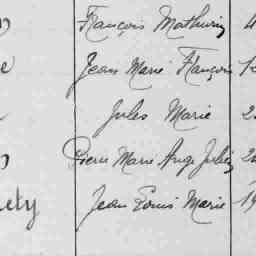 François Mathurin 4
e Jean Marie François 1
Jules Marie 2
Pierre Marie Ange Julien 2
ety Jean Louis Marie 19